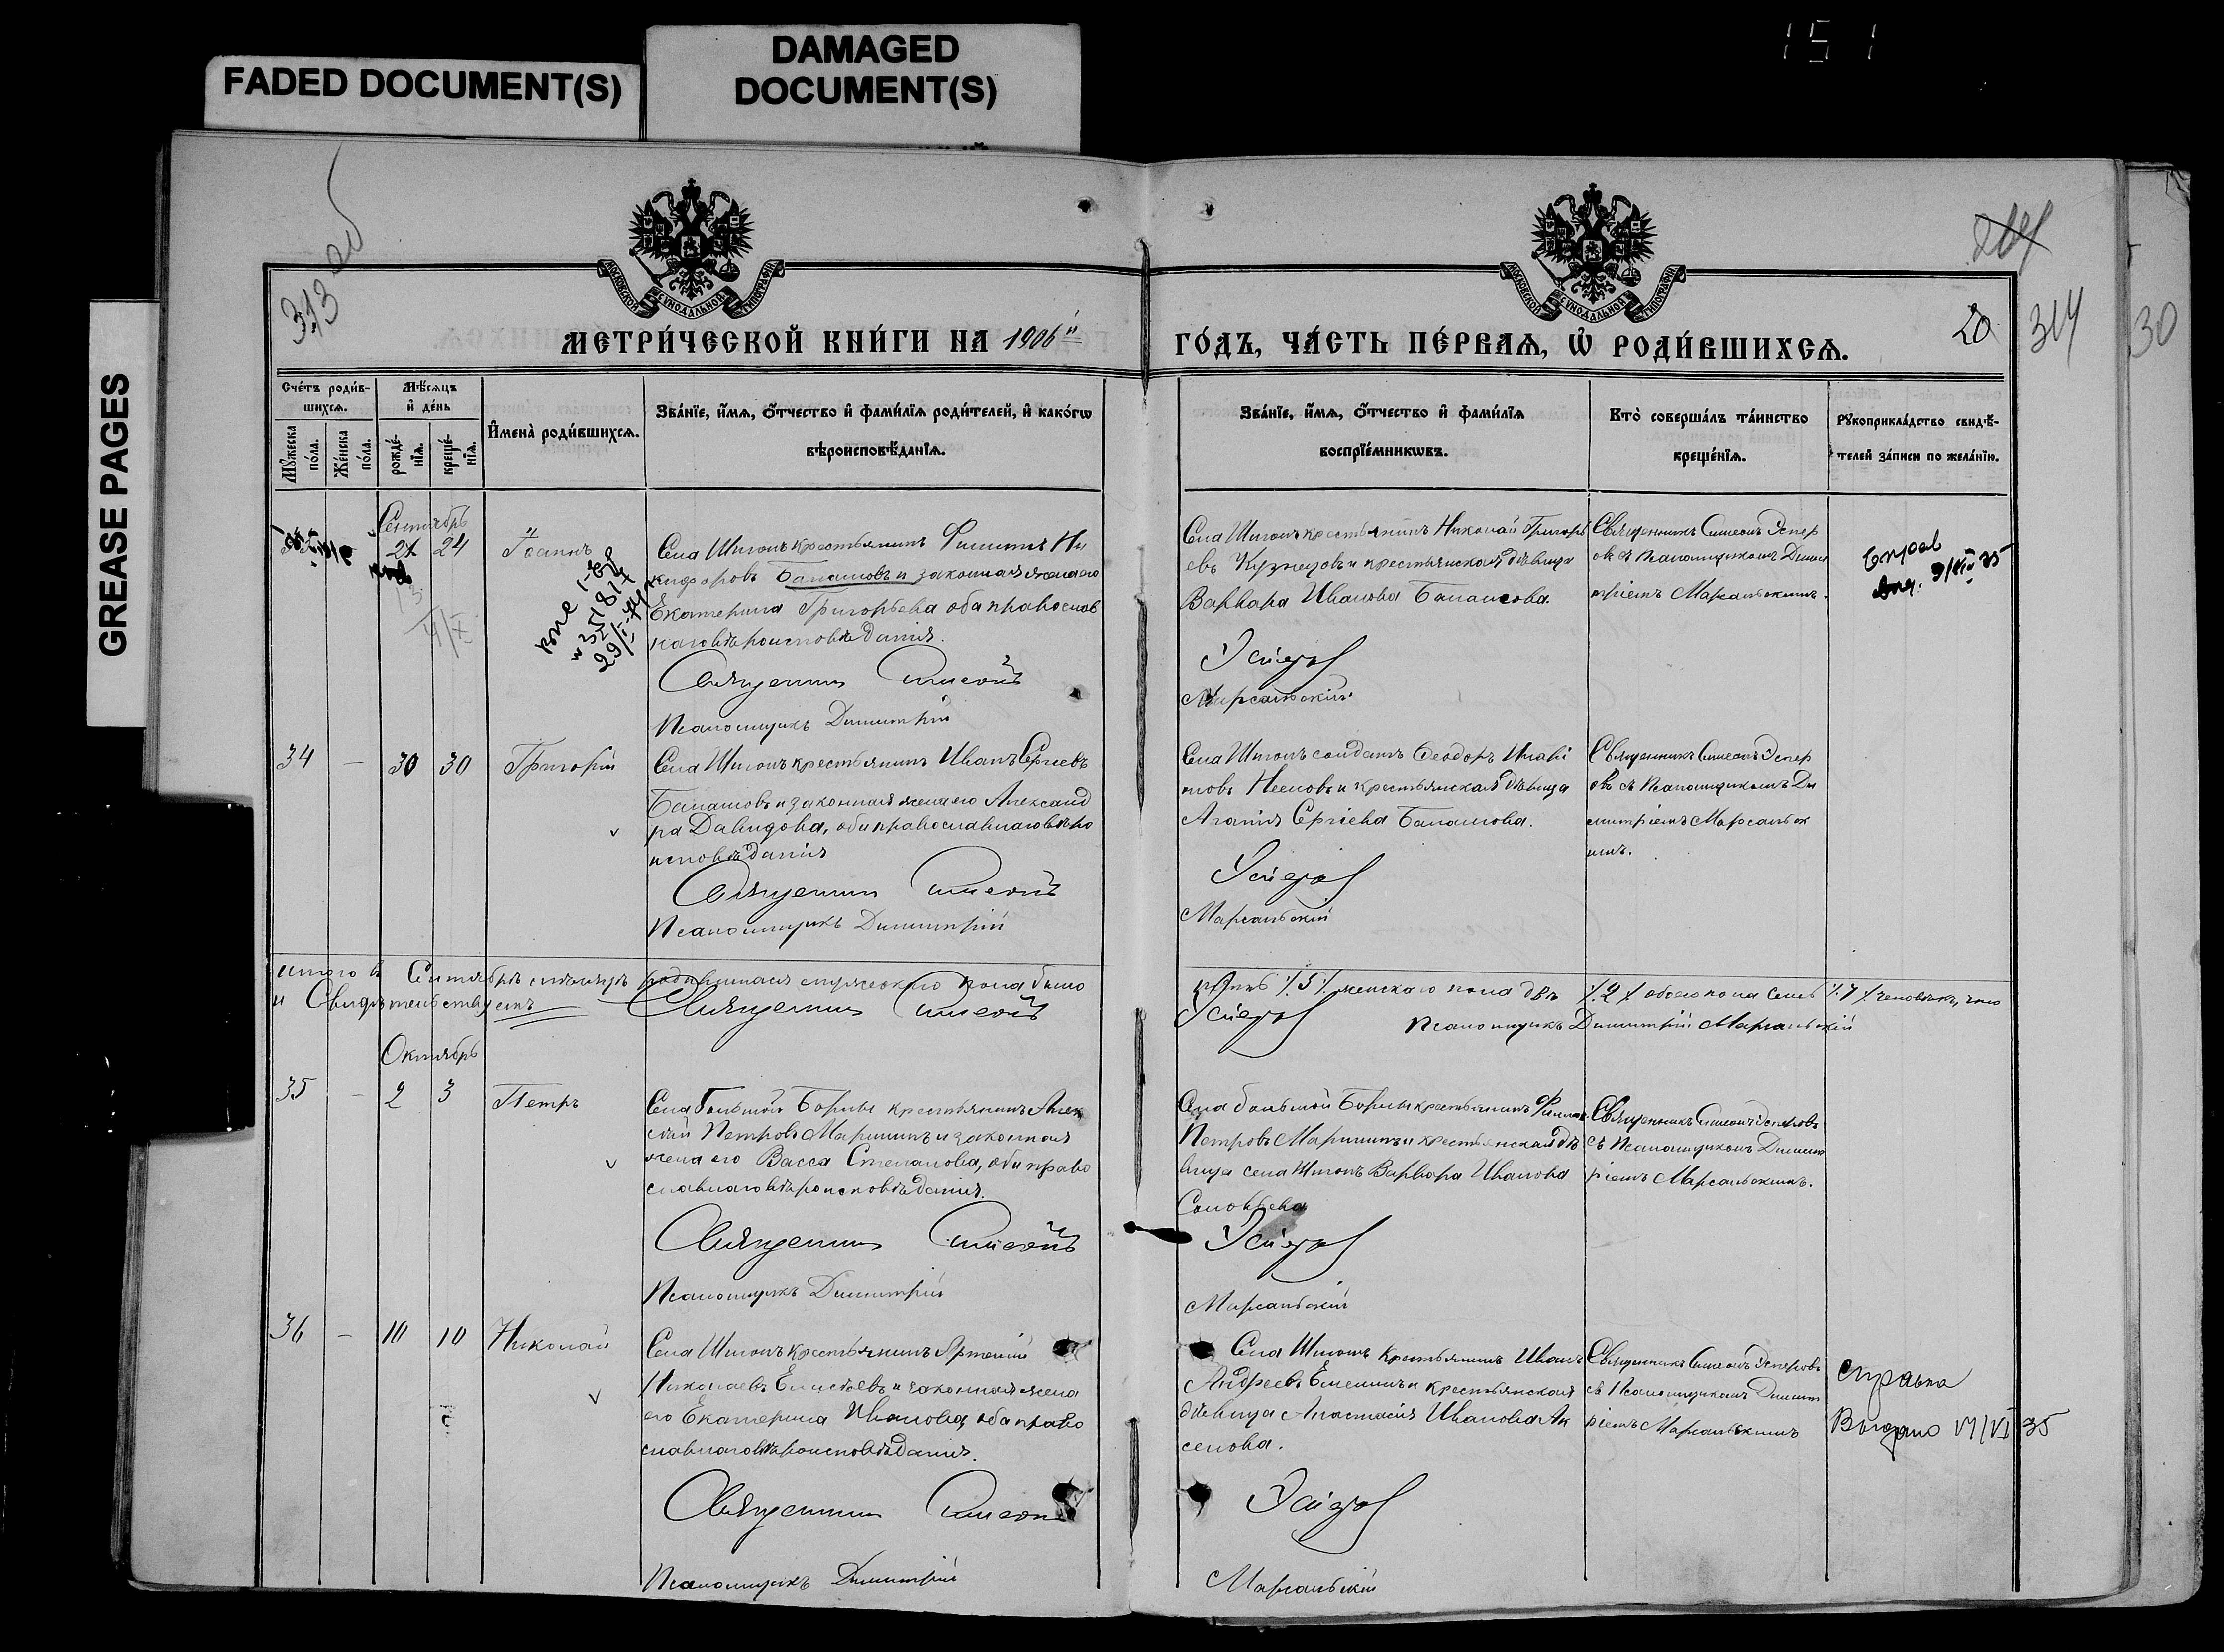 FADED DOCUMENT(S)
DAMAGED
DOCUMENT(S)
GREASE PAGES
151
313 об
264
314
30
20
МОСКОВСКОЙ СѴНОДАЛЬНОЙ ТИПОГРАФІИ
МОСКОВСКОЙ СѴНОДАЛЬНОЙ ТИПОГРАФІИ
МЕТРИ́ЧЕСКОЙ КНИ́ГИ НА 1906й
ГО́ДЪ, ЧА́СТЬ ПЕ́РВАѦ, Ѡ҆ РОДИ́ВШИХСѦ.
Сче́тъ роди́в-
шихсѧ.
Мꙋ́жеска по́ла.
Же́нска по́ла.
Мѣ́сѧцъ
и҆ де́нь
рожде́-
нїѧ.
креще́-
нїѧ.
И҆мена̀ роди́вшихсѧ.
Зва́нїе, и҆́мѧ, ѻ҆́тчество и҆ фами́лїѧ роди́телей, и҆ како́гѡ
вѣроисповѣ́данїѧ.
Зва́нїе, и҆́мѧ, ѻ҆́тчество и҆ фами́лїѧ
воспрїе́мникѡвъ.
Кто̀ соверша́лъ та́инство
креще́нїѧ.
Рꙋкоприкла́дство свидѣ́-
телей за́писи по жела́нїю.
Сентябрь
21 24 Іоаннъ
Села Шигонъ крестьянинъ Филиппъ Ни
кифоровъ Балашовъ и законная жена его
Екатерина Григорьева оба православ
наго вѣроисповѣданія.
Священникъ Симеонъ
Псаломщикъ Димитрій
Села Шигонъ крестьянинъ Николай Григорь
евъ Кузнецовъ и крестьянская дѣвица
Варвара Иванова Балашова.
Эсперовъ
Марсальскій
Священникъ Симеонъ Эспер
овъ съ Псаломщикомъ Дими
тріемъ Марсальскимъ.
Справ
выд. 9/VII 35
34 — 30 30 Григорій
Села Шигонъ крестьянинъ Иванъ Сергеевъ
Балашовъ и законная жена его Александ
ра Давидова, оба православнаго вѣро
исповѣданія
Священникъ Симеонъ
Псаломщикъ Димитрій
Села Шигонъ солдатъ Ѳеодоръ
и крестьянская дѣвица
Агапія Сергіева Балашова.
Эсперовъ
Марсальскій
Священникъ Симеонъ Эспер
овъ съ Псаломщикомъ Ди
митріемъ Марсальск
имъ.
Итого въ Сентябрѣ мѣсяцѣ родившихся мужескаго пола было
пять /5/ женскаго пола двѣ /2/ обоего пола семь /7/ человѣкъ, что
и Свидѣтельствуемъ Священникъ Симеонъ
Эсперовъ Псаломщикъ Димитрій Марсальскій
Октябрь
35 — 2 3 Петръ
Села Большой Борлы крестьянинъ Алек
сѣй Петровъ Маришинъ и законная
жена его Васса Степанова, оба право
славнаго вѣроисповѣданія.
Священникъ Симеонъ
Псаломщикъ Димитрій
Села большой Борлы крестьянинъ Филиппъ
Петровъ Маришинъ и крестьянская дѣ
вица села Шигонъ Варвара Иванова
Соловьева
Эсперовъ
Марсальскій
Священникъ Симеонъ Эсперовъ
съ Псаломщикомъ Димит
ріемъ Марсальскимъ.
36 — 10 10 Николай
Села Шигонъ крестьянинъ Артемій
Николаевъ Елисѣевъ и законная жена
его Екатерина Иванова, оба право
славнаго вѣроисповѣданія.
Священникъ Симеонъ
Псаломщикъ Димитрій
Села Шигонъ крестьянинъ Иванъ
Андреевъ Емелинъ и крестьянская
дѣвица Анастасія Иванова Ак
сенова.
Эсперовъ
Марсальскій
Священникъ Симеонъ Эсперовъ
съ Псаломщикомъ Димит
ріемъ Марсальскимъ
справка
Выдано VI/VI 35